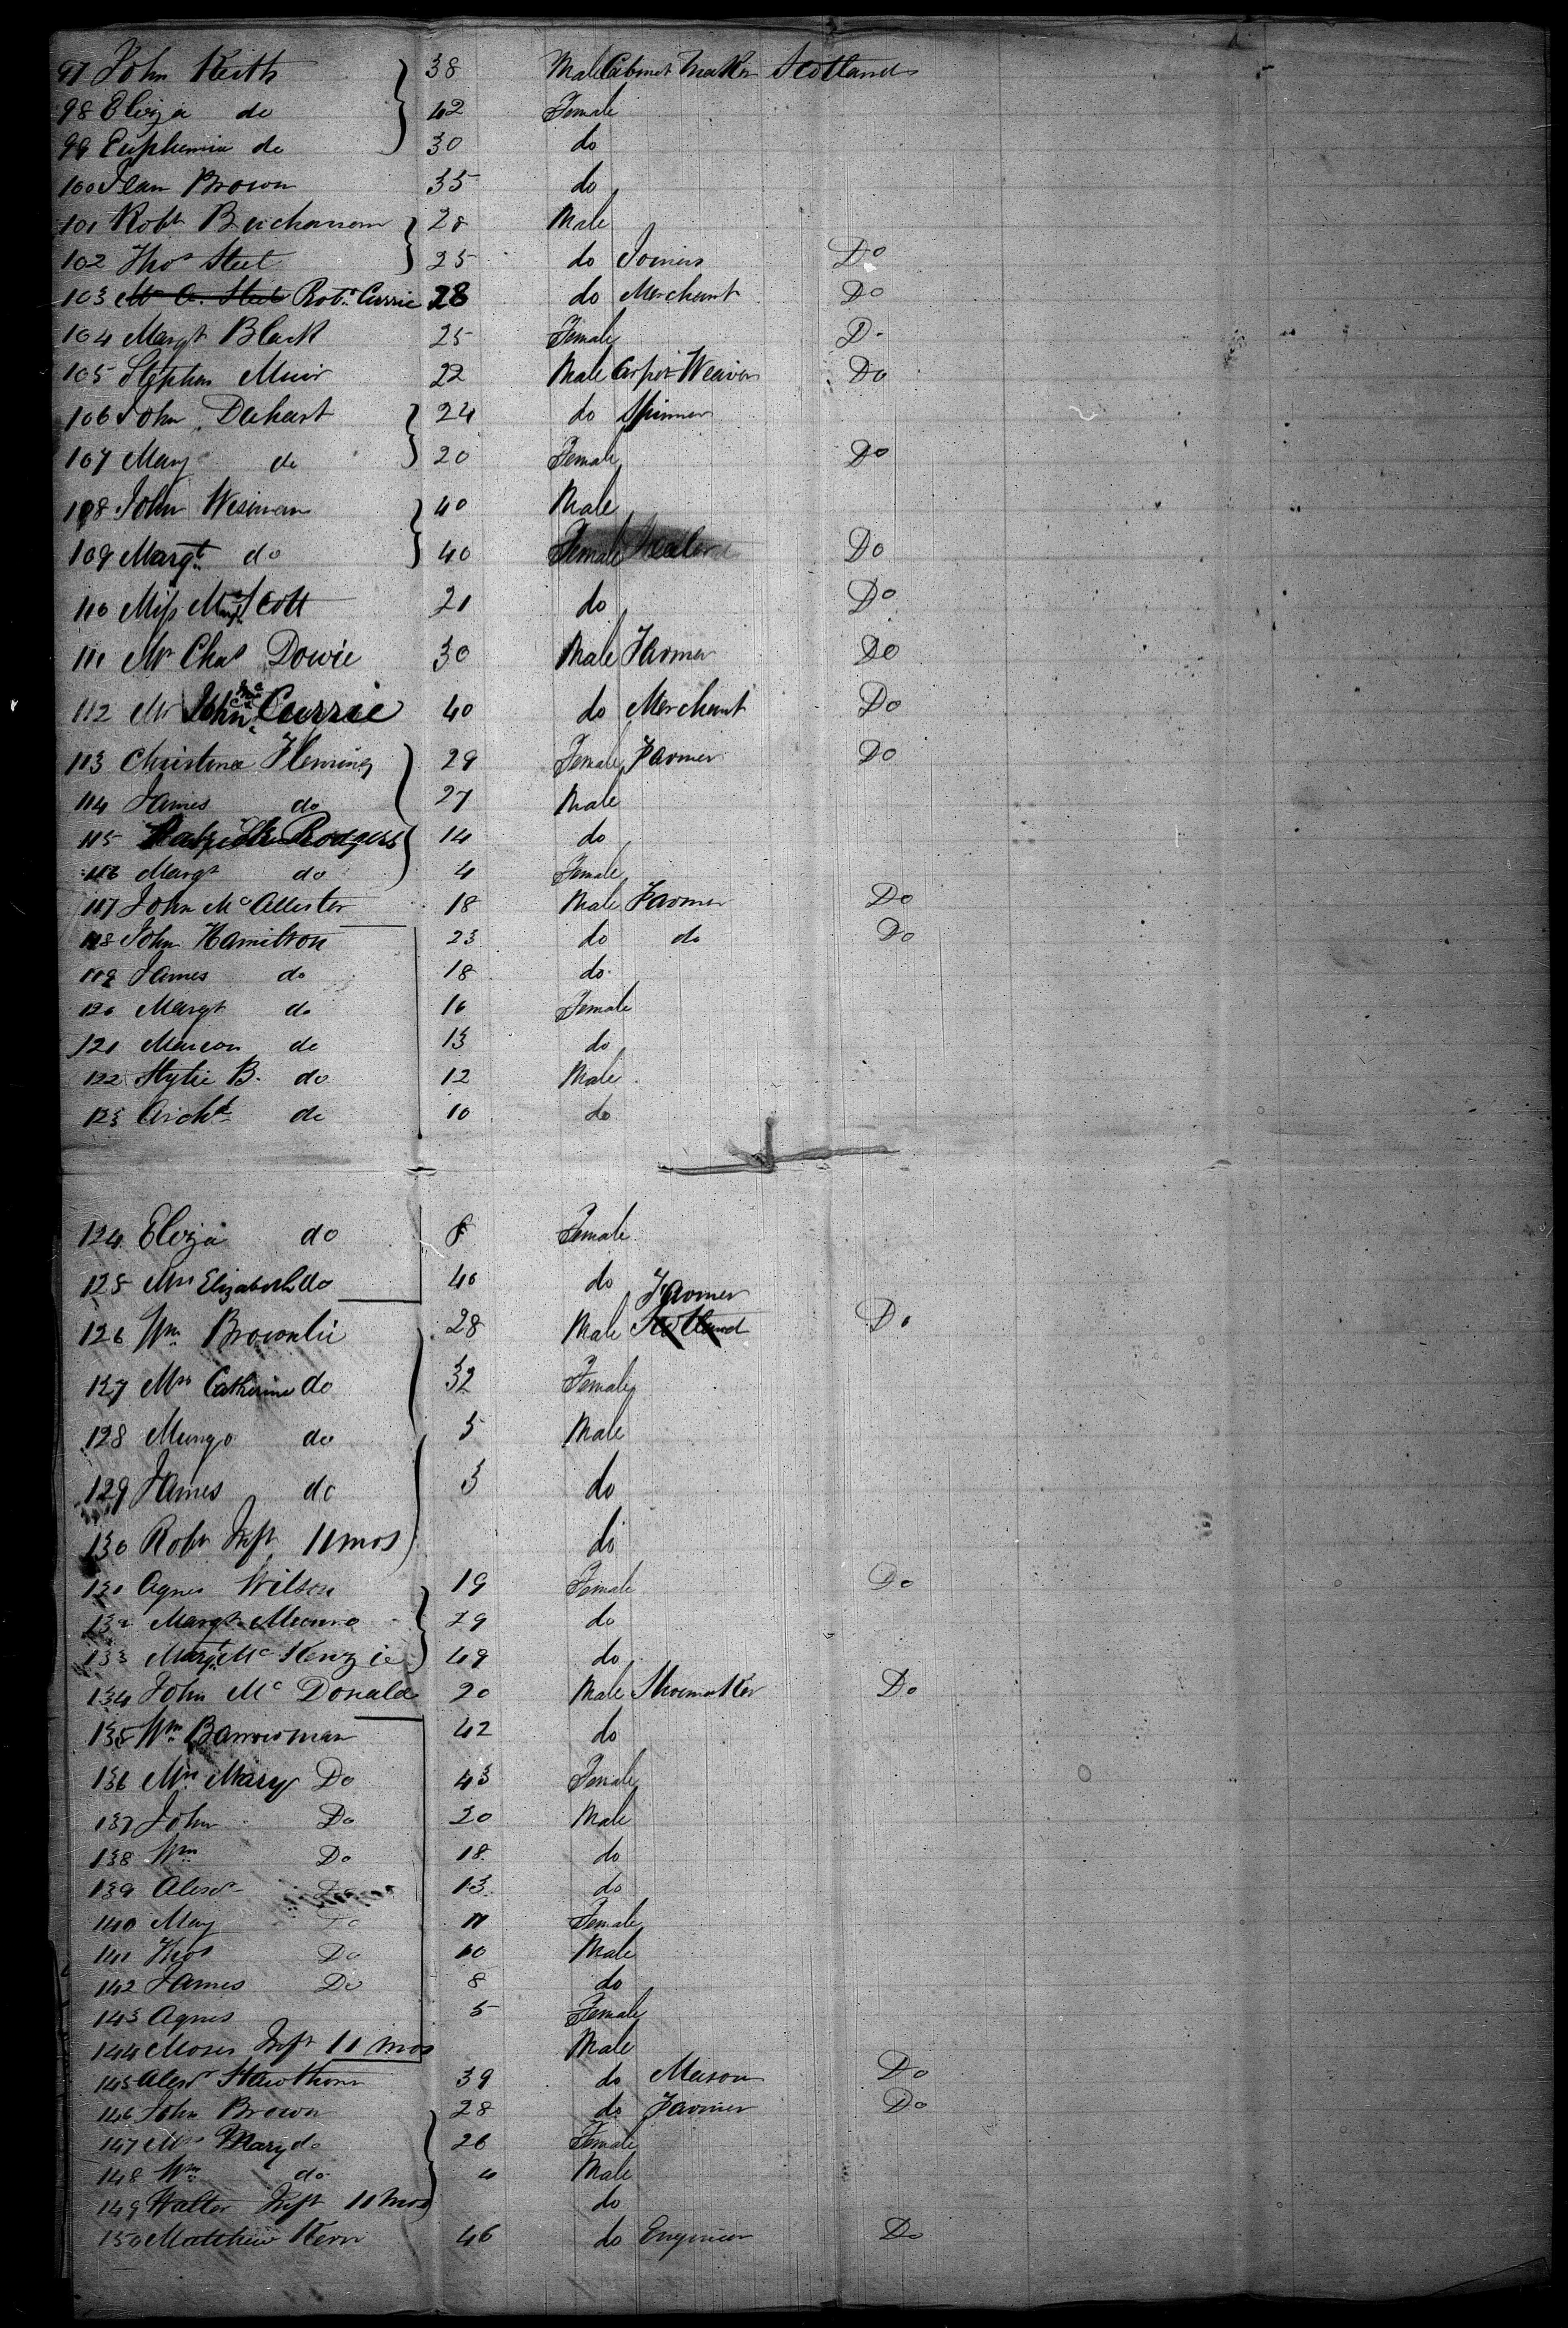 97 John Keith 38 Male Cabinet Maker Scotland
98 Eliza do 42 Female
99 Euphemia do 30 do
100 Jean Brown 35 do
101 Robt Buchanan 28 Male
102 Thos Steel 25 do Joiners Do
103 Mr A. Steel Robt. Currie 28 do Merchant Do
104 Margt Black 25 Female Do
105 Stephen Muir 22 Male Carpet Weaver Do
106 John 24 do Spinner
107 Mary do 20 Female Do
108 John Wiseman 40 Male
109 Margt do 40 Female Do
110 Miss Margt Scott 21 do Do
111 Mr Chas Dowie 30 Male Farmer Do
112 Mr John Currie 40 do Merchant Do
113 Christina Fleming 29 Female Farmer Do
114 James do 27 Male
115 Rodgers 14 do
116 Margt do 4 Female
117 John McAllister 18 Male Farmer Do
118 John Hamilton 23 do do Do
119 James do 18 do
120 Margt do 16 Female
121 Marion do 13 do
122 B. do 12 Male
123 Archd do 10 do
124 Eliza do 8 Female
125 Mrs Elizabeth do 40 do
Farmer
126 Wm Brownlie 28 Male Scotland Do
127 Mrs Catherine do 32 Female
128 Mungo do 5 Male
129 James do 3 do
130 Robt Inft 11 mos do
131 Agnes Wilson 19 Female Do
132 Margt Munro 29 do
133 Margt McKenzie 49 do
134 John McDonald 20 Male Shoemaker Do
135 Wm Barrowman 42 do
136 Mrs Mary Do 43 Female
137 John Do 20 Male
138 Wm Do 18 do
139 Alexr Do 13 do
140 May Do 11 Female
141 Thos Do 10 Male
142 James Do 8 do
143 Agnes 5 Female
144 Moses Inft 11 mos Male
145 Alexr Hawthorn 39 do Mason Do
146 John Brown 28 do Farmer Do
147 Mrs Mary do 26 Female
148 Wm do 4 Male
149 Walter Inft 11 mos do
150 Matthew Kerr 46 do Engineer Do